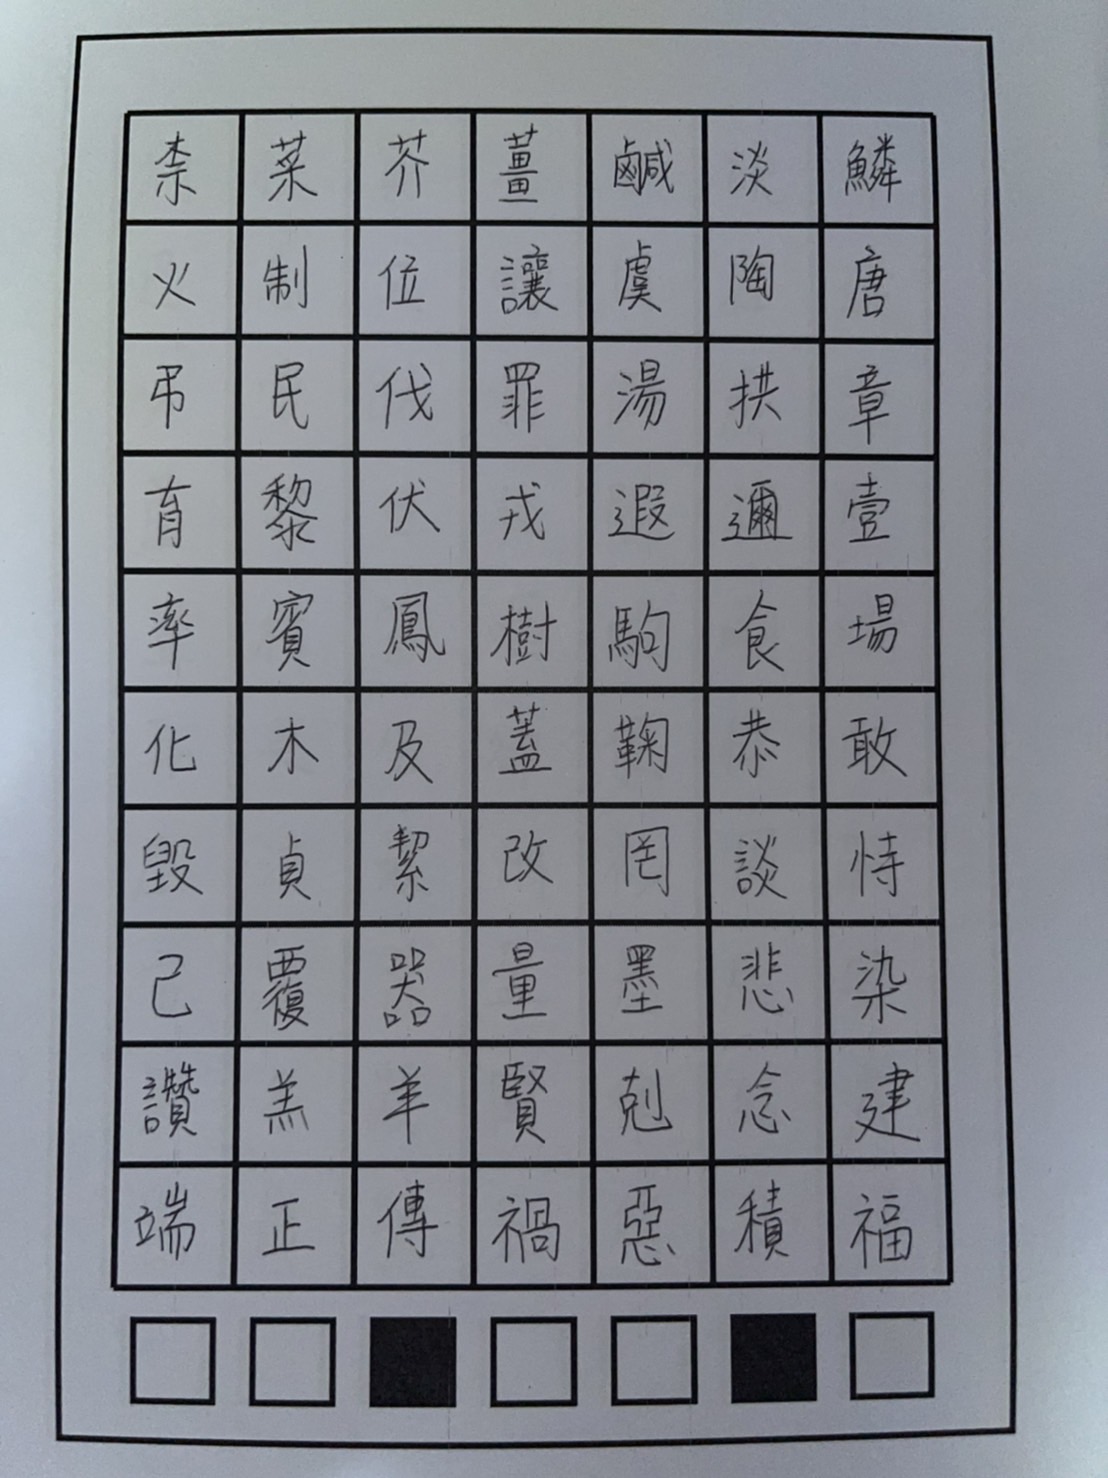 柰菜芥薑鹹淡鱗
火制位讓虞陶唐
弔民伐罪湯拱章
育黎伏戎遐邇壹
率賓鳳樹駒食場
化木及蓋鞠恭敢
毀貞絜改罔談恃
己覆器量墨悲染
讚羔羊賢剋念建
端正傳禍惡積福